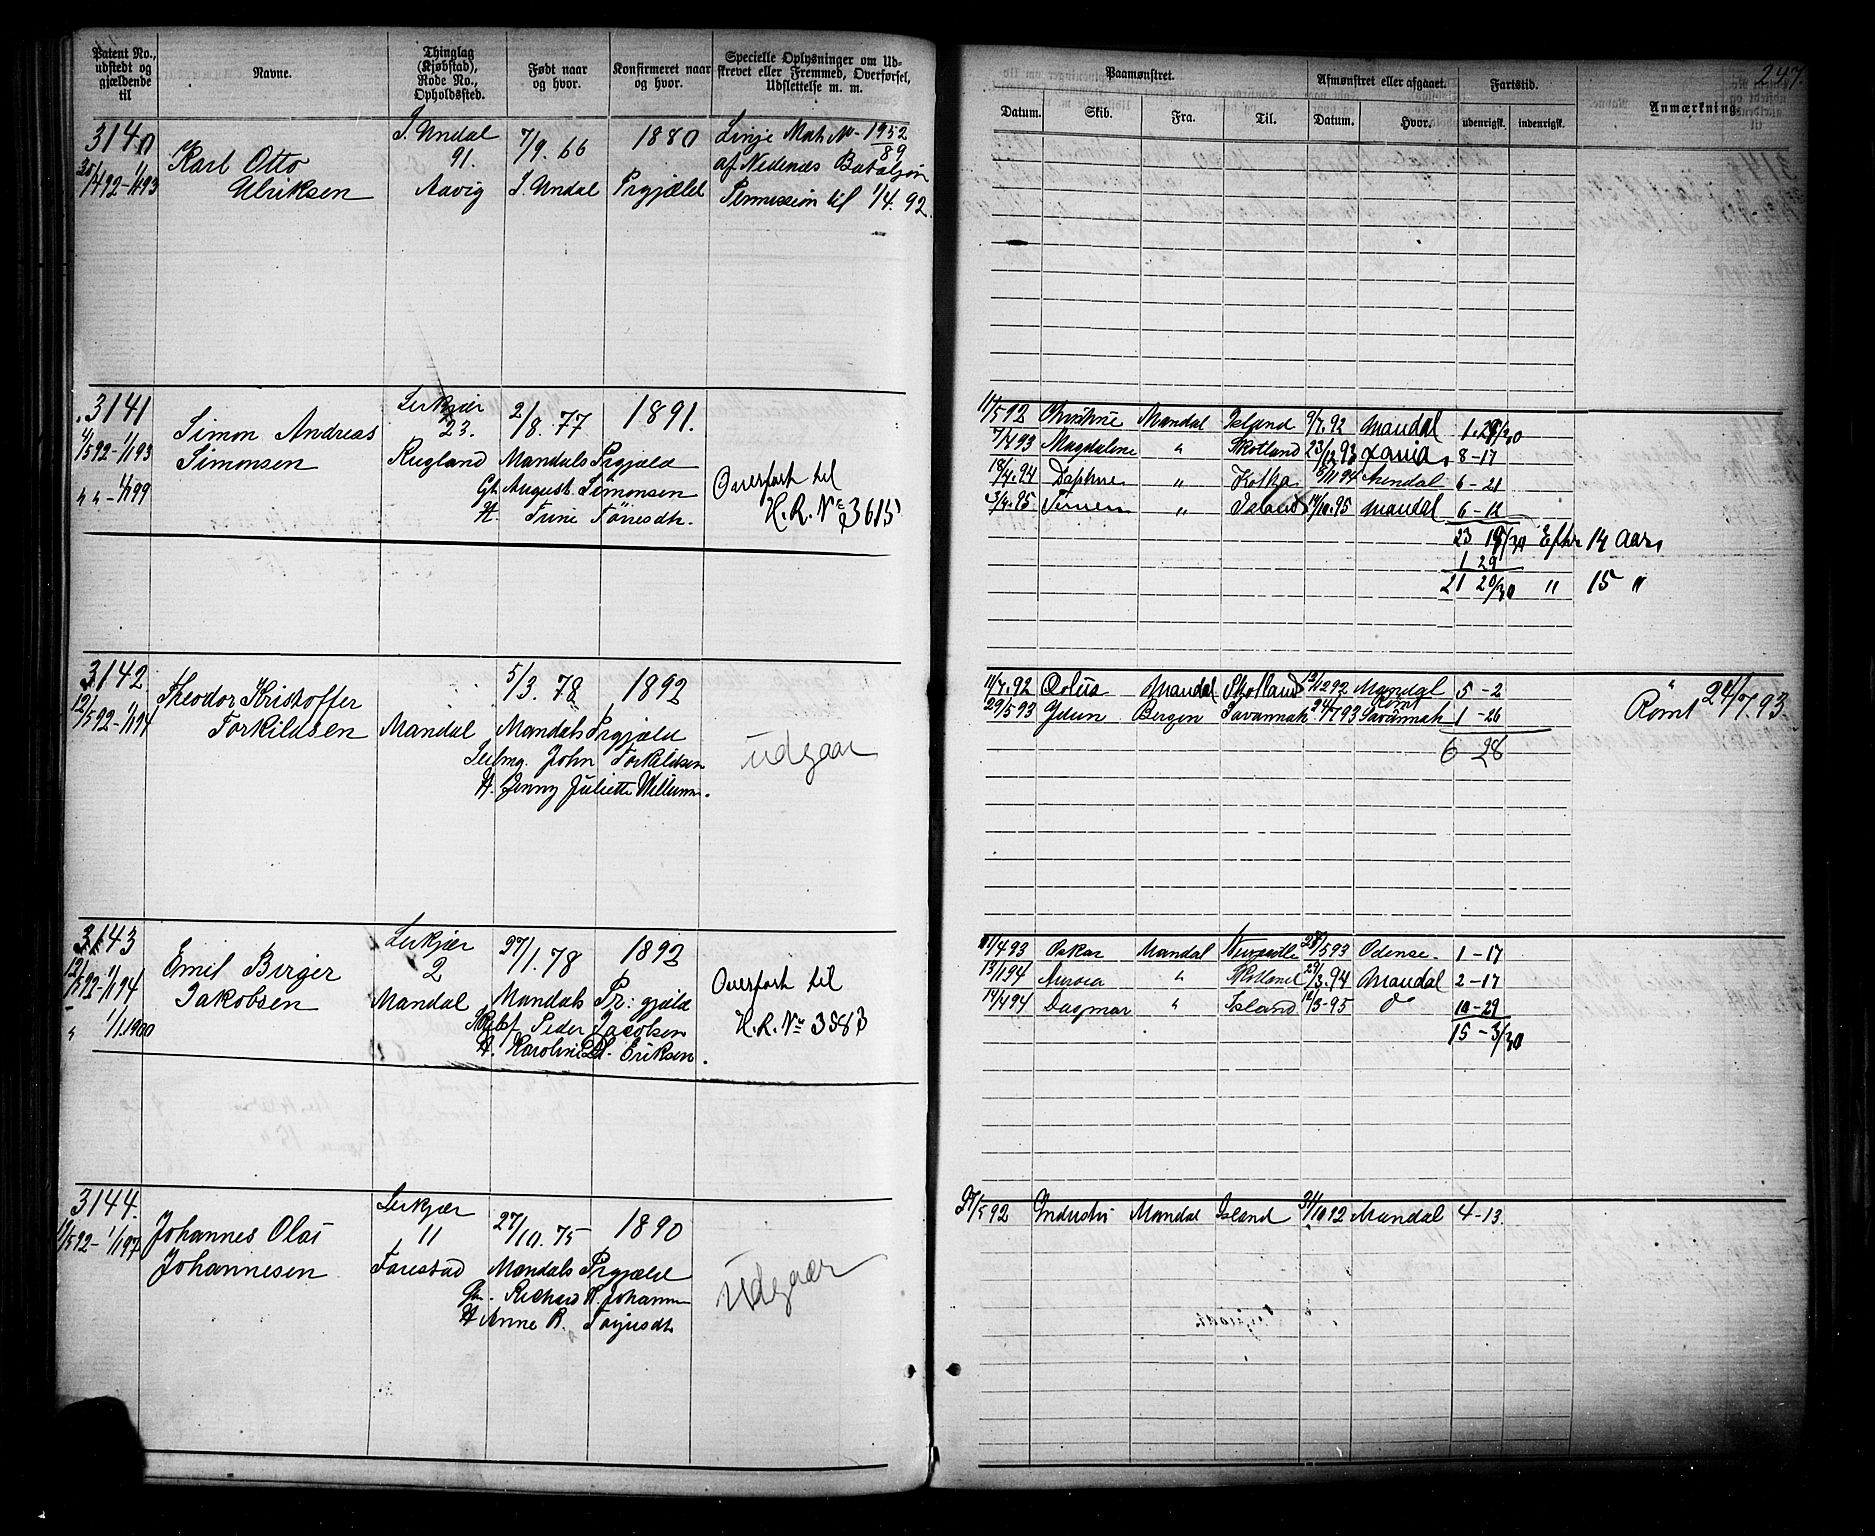 Patent No., udstedt og gjældende til
Navne.
Thinglag (Kjøbstad), Rode No., Opholdssted.
Født naar og hvor.
Konfirmeret naar og hvor.
Specielle Oplysninger om Udskrevet eller Fremmed, Overførsel, Udslettelse m. m.
Paamønstret.
Afmønstret eller afgaaet.
Fartstid.
Anmærkning.
247.
Datum. Skib. Fra. Til. Datum. Hvor. udenrigsk. indenrigsk.
3140
Karl Otto
Ulriksen
S. Undal
91.
Aavig
7/9. 66
S. Undal
1880
Prgjæld
Linje Mat. No 1952/89
af Nedenæs Bataljon
Permission til 1/4. 92.
3141
4/5 92-1/1 93
" " - 1/1 99
Simon Andreas
Simonsen
Leikjær
23.
Rugland
2/8. 77
1891.
Mandals Prgjæld
Gb. August Simonsen
H. Trine Tönesdtr.
Overført til
H.R. No 3615
11/5 92 Christine Mandal Island 9/7. 92 Mandal 1. 29/30
7/4 93 Magdalene " Skotland 23/12 93 8-17
18/4. 94 Daphne " Kotka 8/11 94 Arendal 6-21
3/4. 95. Ternen " Island 14/10. 95 Mandal 6-12
23 19/30 Efter 14 Aar
1 29
21 20/30 " 15 "
3142
12/5 92-1/1 94
Theodor Kristoffer
Torkildsen
Mandal
5/3. 78
1892
Mandals Prgjæld
John Torkildsen
H. Jenny Juliette Willumsen.
udgaar
11/7. 92 Mandal Skotland 13/12 92 Mandal 5-2
29/5 93 Ydun Bergen Savannah 24/7 93 Rømt Savannah 1-26
6 28
Rømt 24/7. 93.
3143
12/5 92-1/1 94
" 1/1 1900
Emil Birger
Jakobsen
Leikjær
2
Mandal
27/1. 78
1892
Mandals Pr: gjæld
Peder Jacobsen
H. Karoline Eriksen.
Overført til
H.R. No 3583
11/4 93 Oskar Mandal 28/5 93 Odense. 1-17
13/1 94 Aurora " Skotland 29/3. 94 Mandal 2-17
14/4 94 Dagmar " Island 12/3-95 do 10-29
15-3/30
3144.
Johannes Olai
Johannesen
Leikjær
11
Farestad
27/10. 75
1890
Mandals Prgjæld
Richard
H Anne B.
udgaar
27/5 92 Industri Mandal Island Mandal 4-13.